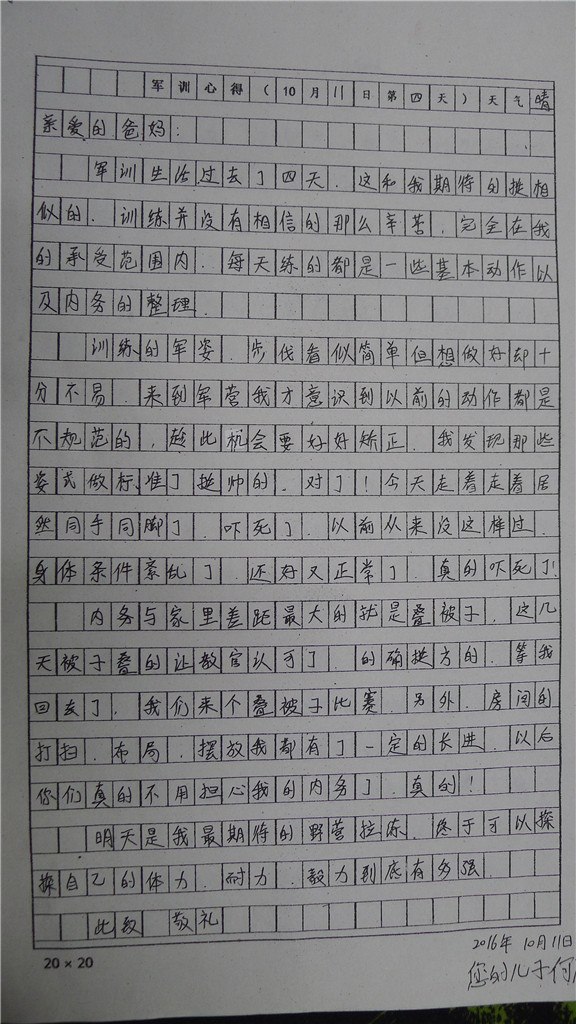 军训心得(10月11日第四天)天气晴
亲爱的爸妈:
军训生活过去了四天.这和我期待的挺相
似的.训练并没有相信的那么辛苦,完全在我
的承受范围内.每天练的都是一些基本动作以
及内务的整理.
训练的军姿.步伐看似简单但想做好却十
分不易.来到军营我才意识到以前的动作都是
不规范的,趁此机会要好好矫正.我发现那些
姿式做标准了挺帅的.对了!今天走着走着居
然同手同脚了.吓死了.以前从来没这样过.
身体条件紊乱了.还好又正常了.真的吓死了!
内务与家里差距最大的就是叠被子.这几
天被子叠的让教官认可了.的确挺方的.等我
回去了,我们来个叠被子比赛.另外.房间的
打扫.布局.摆放我都有了一定的长进.以后
你们真的不用担心我的内务了.真的!
明天是我最期待的野营拉练.终于可以探
探自己的体力.耐力.毅力到底有多强.
此致 敬礼
20×20
2016年10月11日
您的儿子何